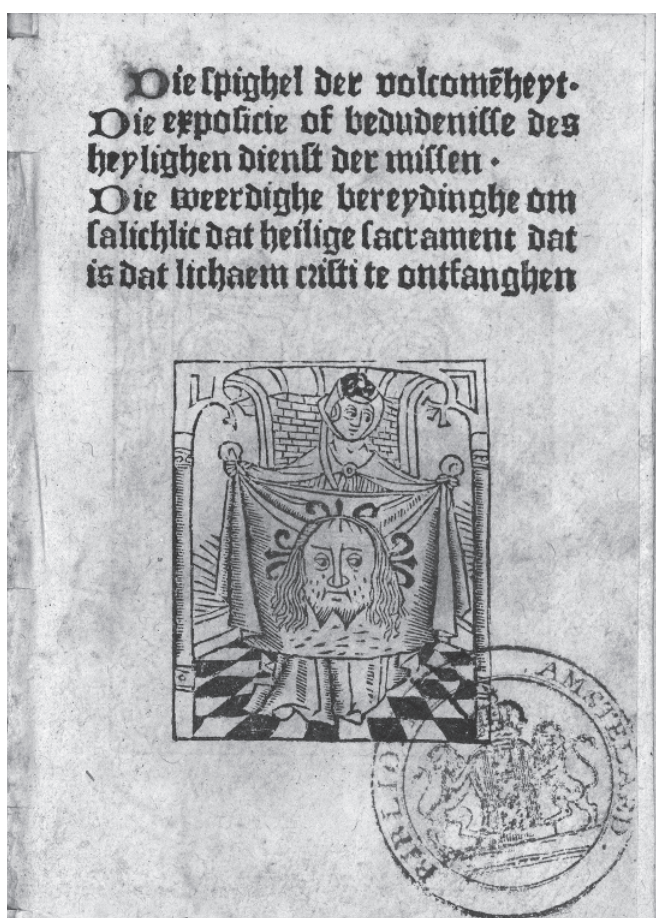 Die spighel der volcomēheyt·
Die exposicie of bedudenisse des
heylighen dienst der missen·
Die weerdighe bereydinghe om
salichlic dat heilige sacrament dat
is dat lichaem cristi te ontfanghen